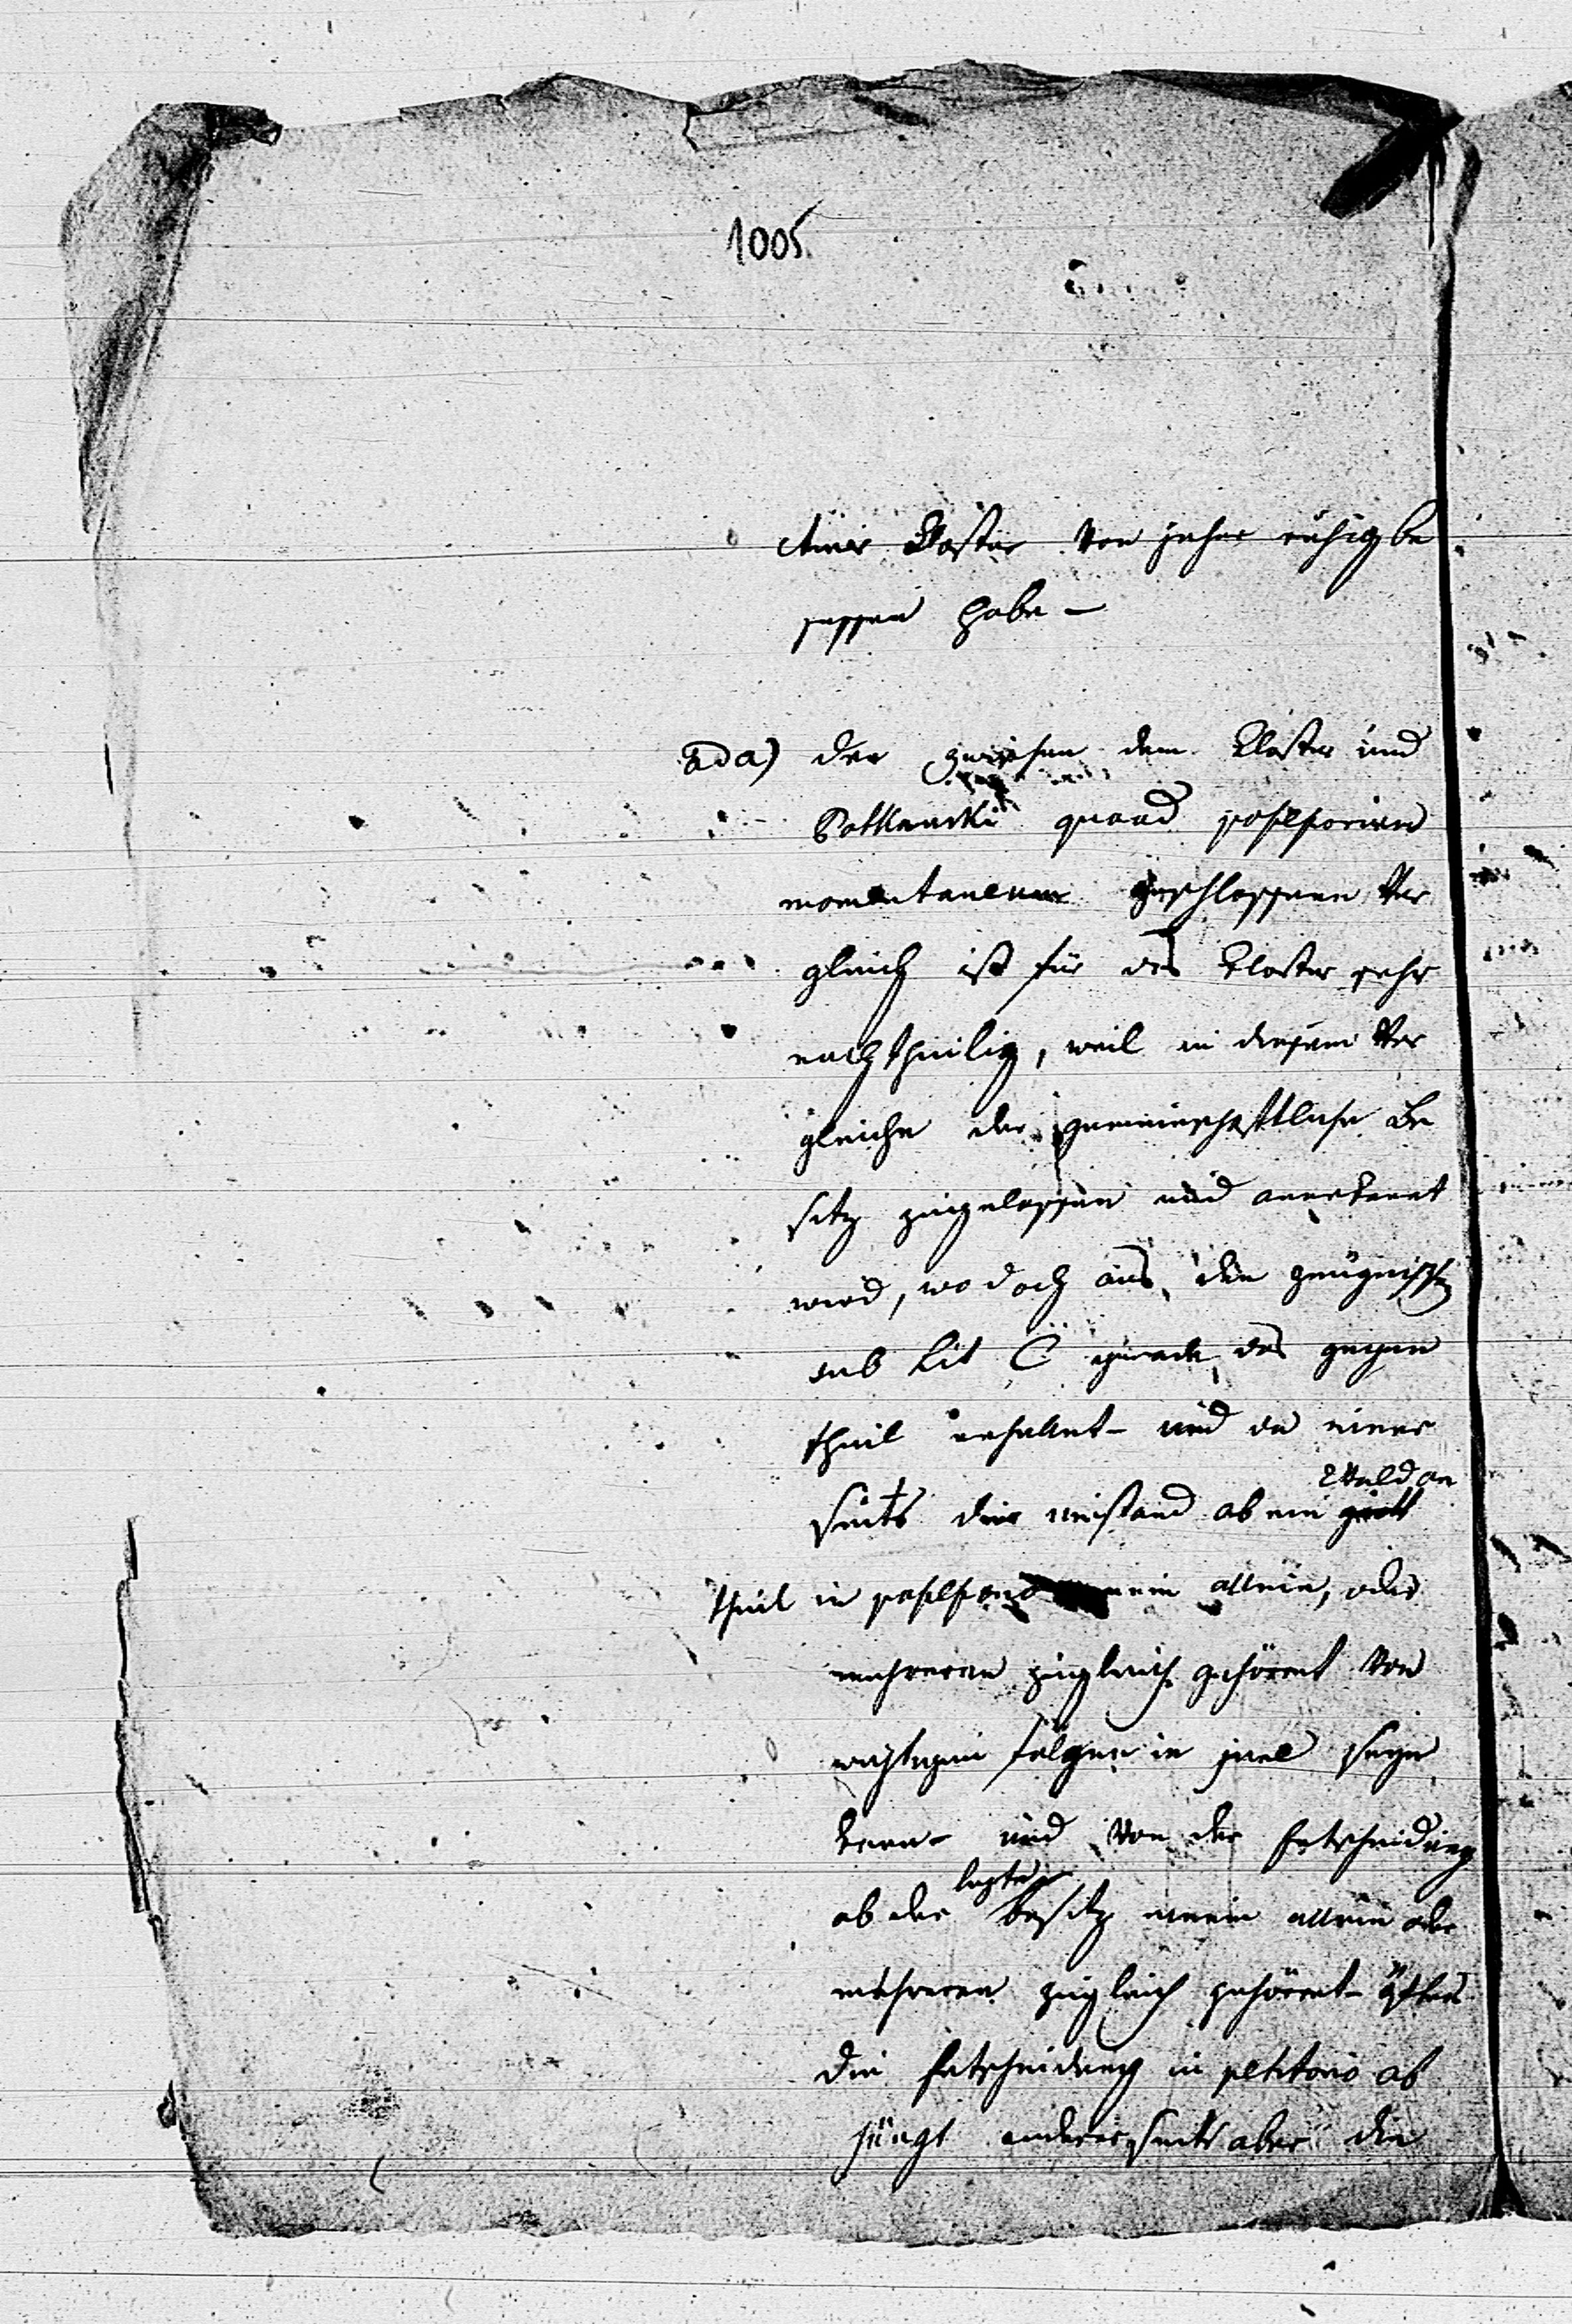 1005.
Kloster von jeher ruhig be
sessen habe –
ad a) der zwischen dem Kloster und
Potkanski quoad possessorium
momentaneum geschlossene Ver
gleich ist für das Kloster sehr
nachtheilig, weil in diesem Ver
gleiche der gemeinschaftliche Be
sitz zugelassen und anerkannt
wird, wo doch aus den Zeugnissen
sub Lit C gerade das Gegen
theil erhellet – und da einer
seits der Umstand ob ein
Wald an
theil in possessorio einem allein, oder
mehreren zugleich gehöret von
wichtigen Folgen in jure seyn
kann – und von der Entscheidung
ob der Besitz einem allein oder
letzte
mehreren zugleich gehöret – öfters
die Entscheidung in petitorio ab
hängt anderseits aber die